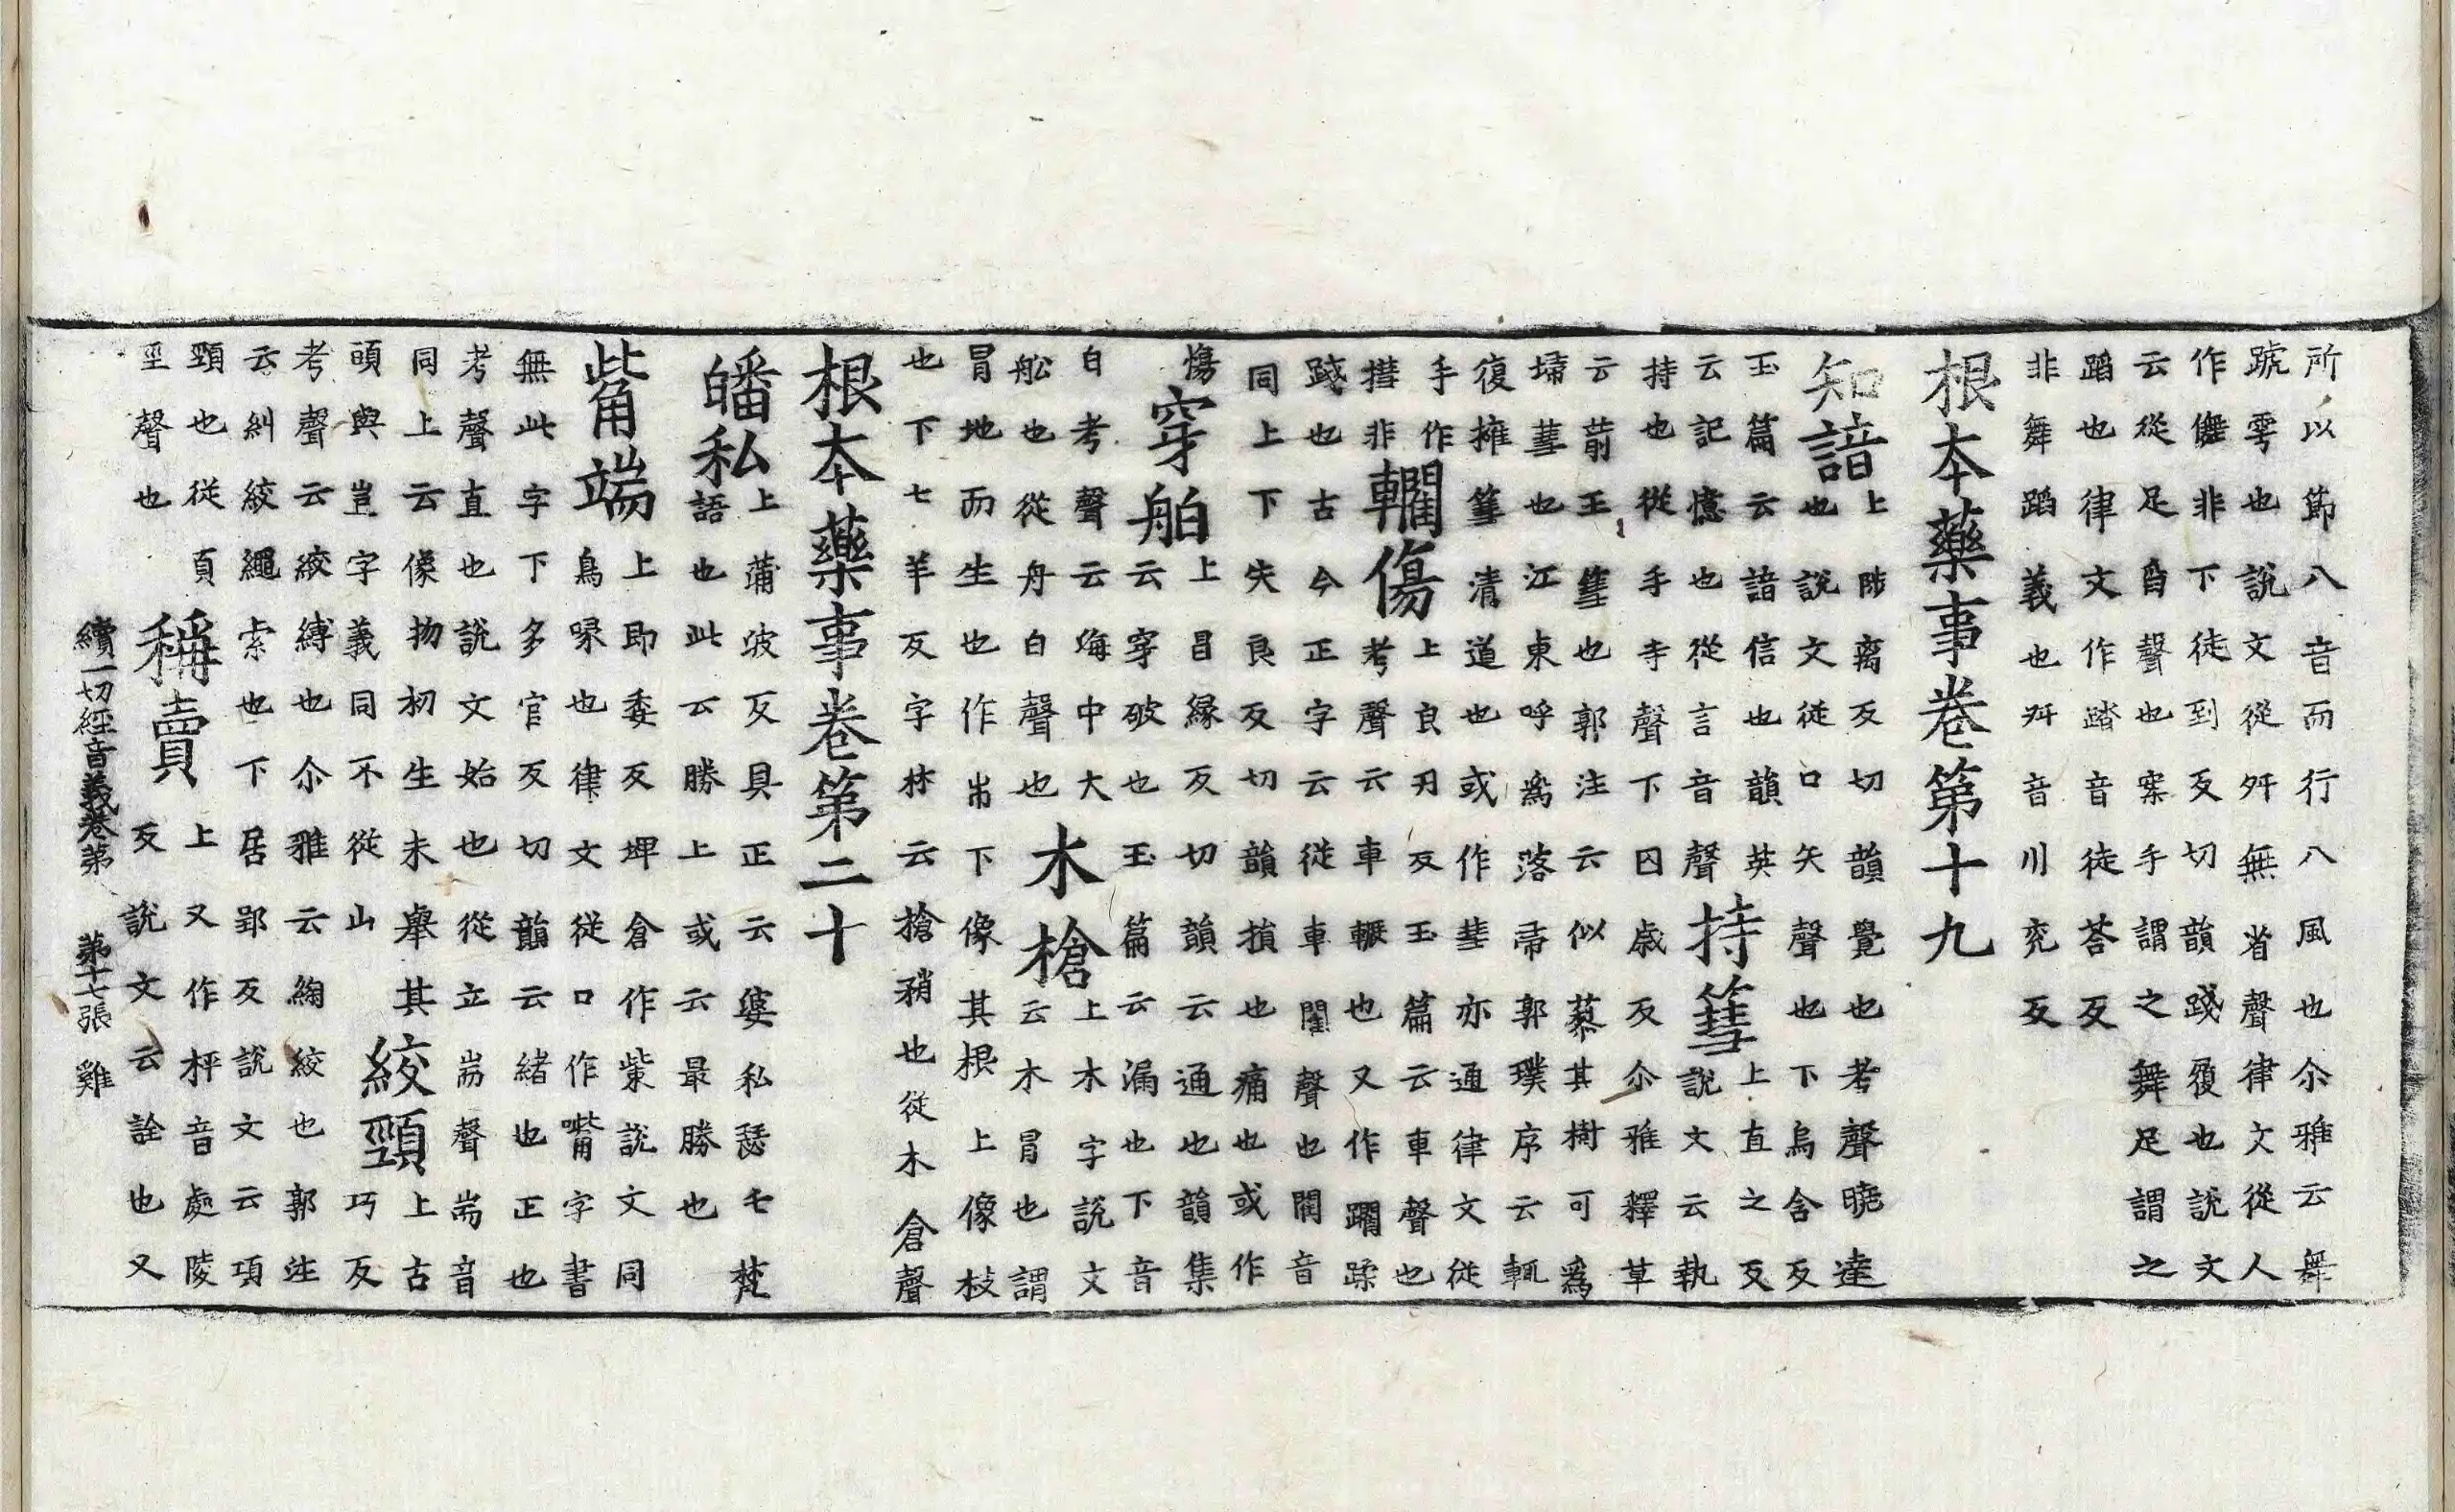 所以節八音而行八風也尒雅云舞
號雩也說文從舛無省聲律文從人
作儛非下徒到反切韻踐履也說文
云從足舀聲也案手謂之舞足謂之
蹈也律文作踏音徒荅反
非舞蹈義也舛音川兖反
根本藥事卷第十九
知諳上陟离反切韻覺也考聲曉達
也說文從口矢聲也下烏含反
玉篇云諳信也韻英
云記憶也從言音聲持篲上直之反
說文云執
持也從手寺聲下囚歲反尒雅釋草
云葥王篲也郭注云似藜其樹可爲
埽彗也江東呼爲落帚郭璞序云輒
復擁篲清道也或作彗亦通律文從
手作
㨹非轥傷上良刃反玉篇云車聲也
考聲云車轢也又作躙蹂
踐也古今正字云從車閵聲也閵音
同上下失良反切韻損也痛也或作
慯穿舶上昌緣反切韻云通也韻集
云穿破也玉篇云漏也下音
白考聲云海中大
舩也從舟白聲也木槍上木字說文
云木冒也謂
冒地而生也作𣎵下像其根上像枝
也下七羊反字林云槍矟也從木倉聲
根本藥事卷第二十
皤私上蒲波反具正云婆私瑟七梵
語也此云勝上或云最勝也
觜端上即委反埤倉作𣠃說文同
鳥喙也律文從口作嘴字書
無此字下多官反切韻云緒也正也
考聲直也說文始也從立耑聲耑音
同上云像物初生未舉其
頭與豈字義同不從山絞頸上古
巧反
考聲云絞縛也尒雅云綯絞也郭注
云糾絞繩索也下居郢反說文云項
頸也從頁
巠聲也稱賣上又作秤音處陵
反說文云詮也又
續一切經音義卷第　第十七張　雞